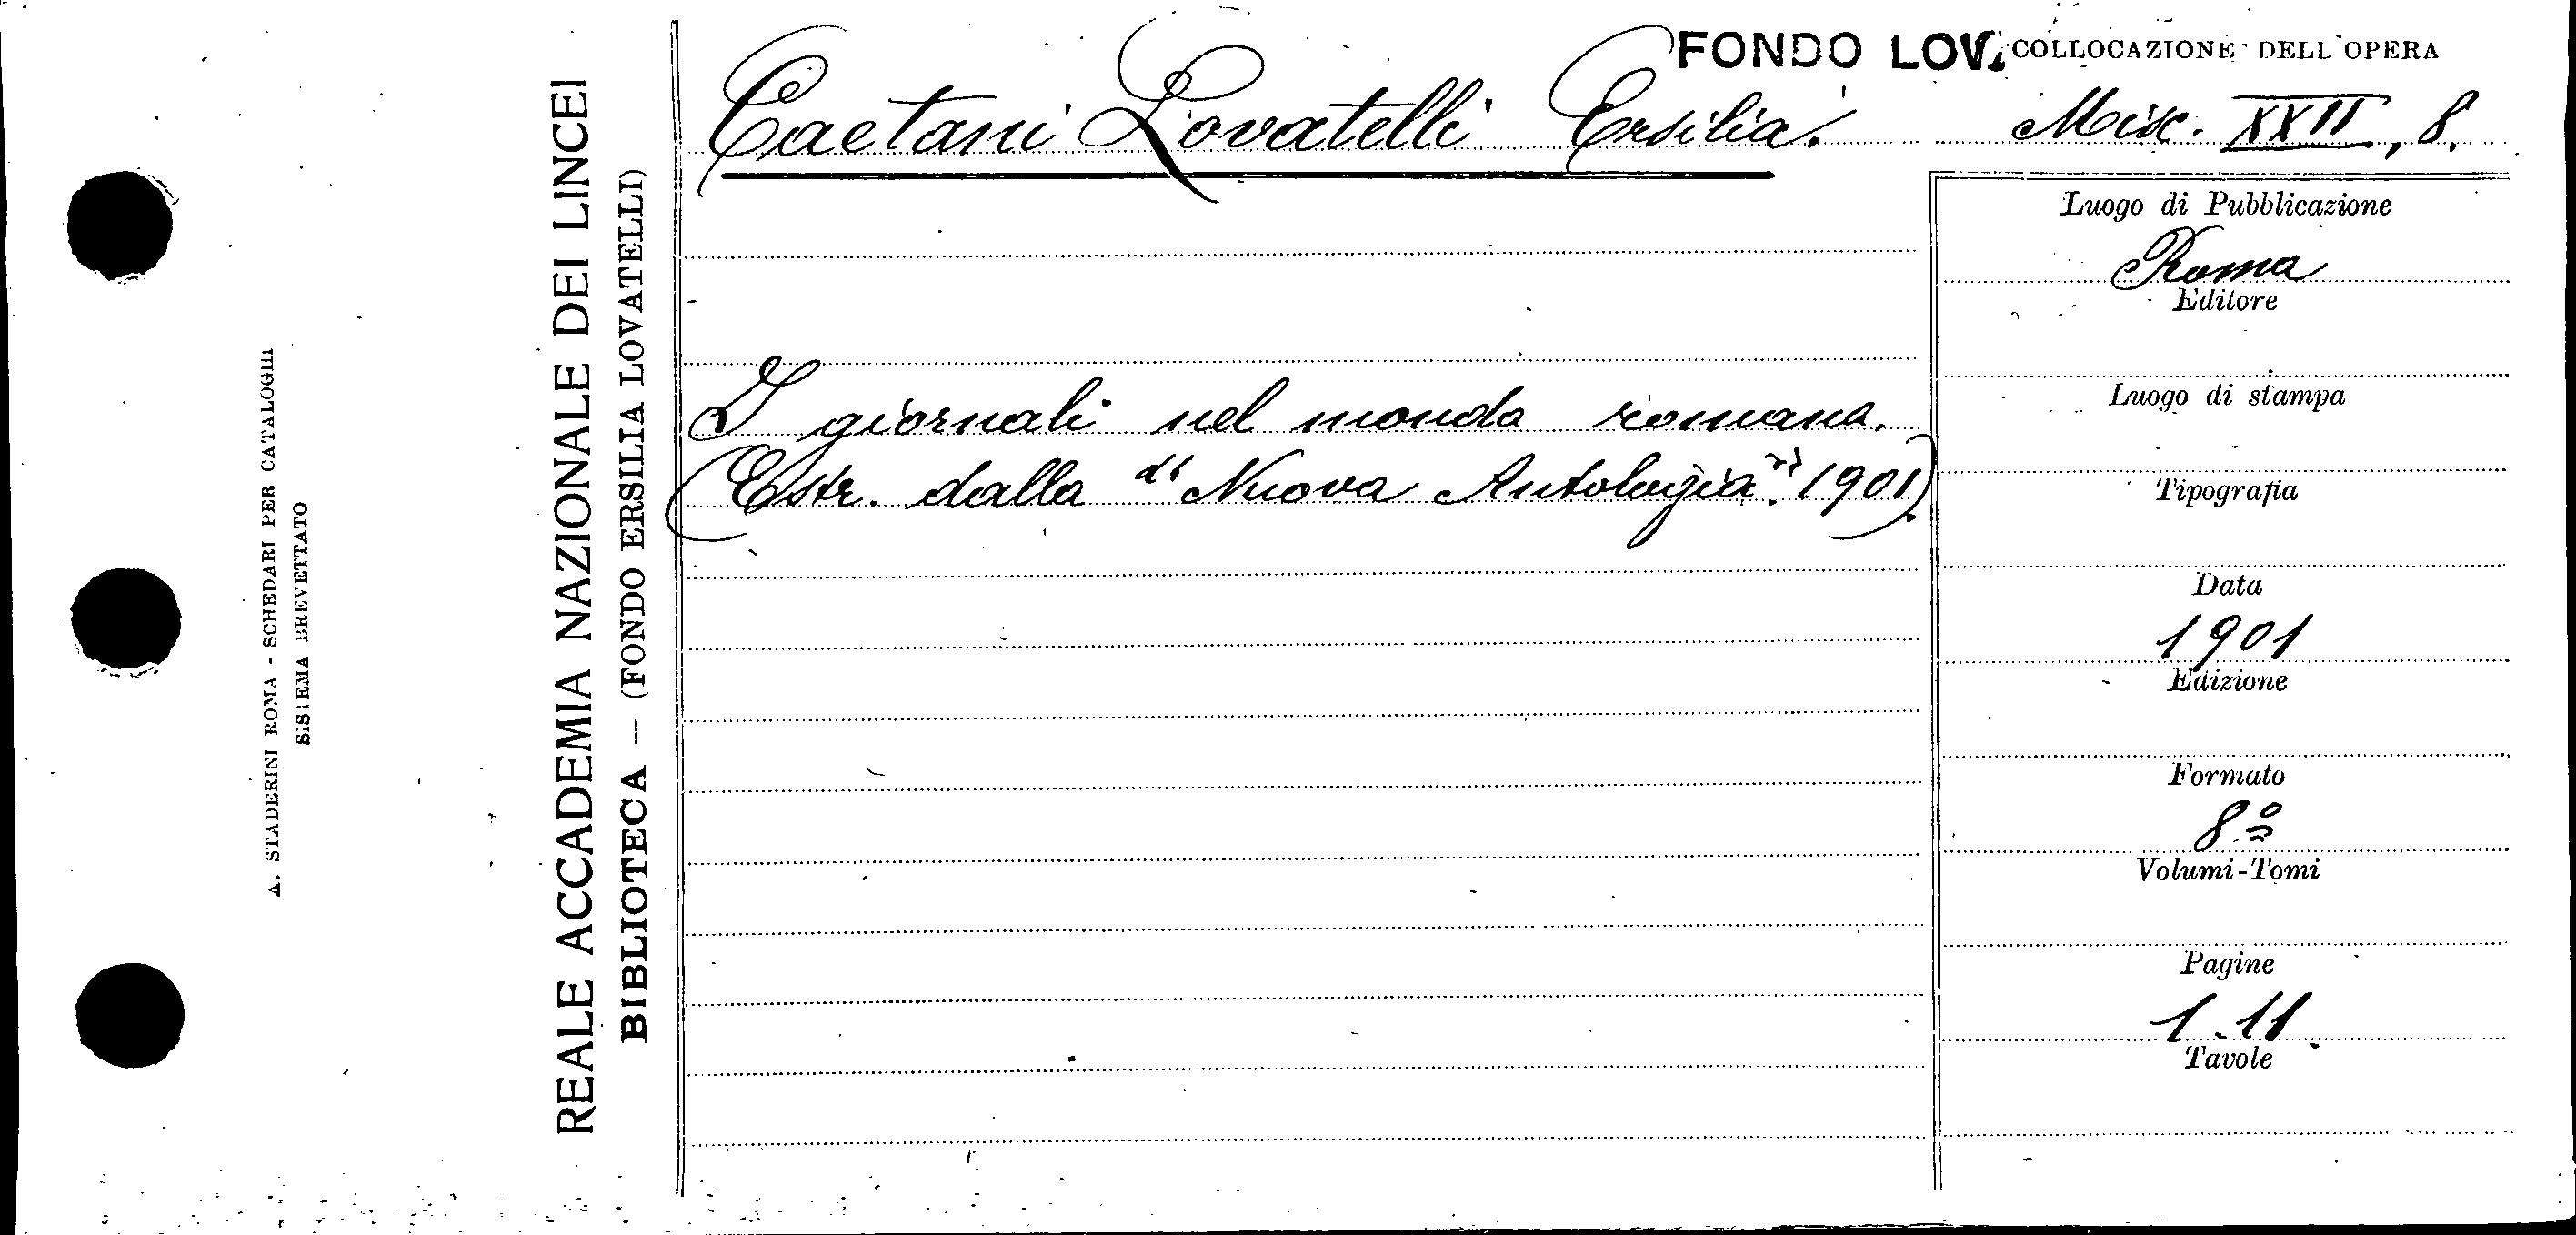 A. STADERINI ROMA - SCHEDARI PER CATALOGHI
SISTEMA BREVETTATO
REALE ACCADEMIA NAZIONALE DEI LINCEI
BIBLIOTECA — (FONDO ERSILIA LOVATELLI)
FONDO LOV.
COLLOCAZIONE DELL'OPERA
Caetani Lovatelli Ersilia.
Misc. XXII, 8.
I giornali nel mondo romano.
(Estr. dalla "Nuova Antologia". 1901).
Luogo di Pubblicazione
Roma
Editore
Luogo di stampa
Tipografia
Data
1901
Edizione
Formato
8º
Volumi-Tomi
Pagine
1-11.
Tavole